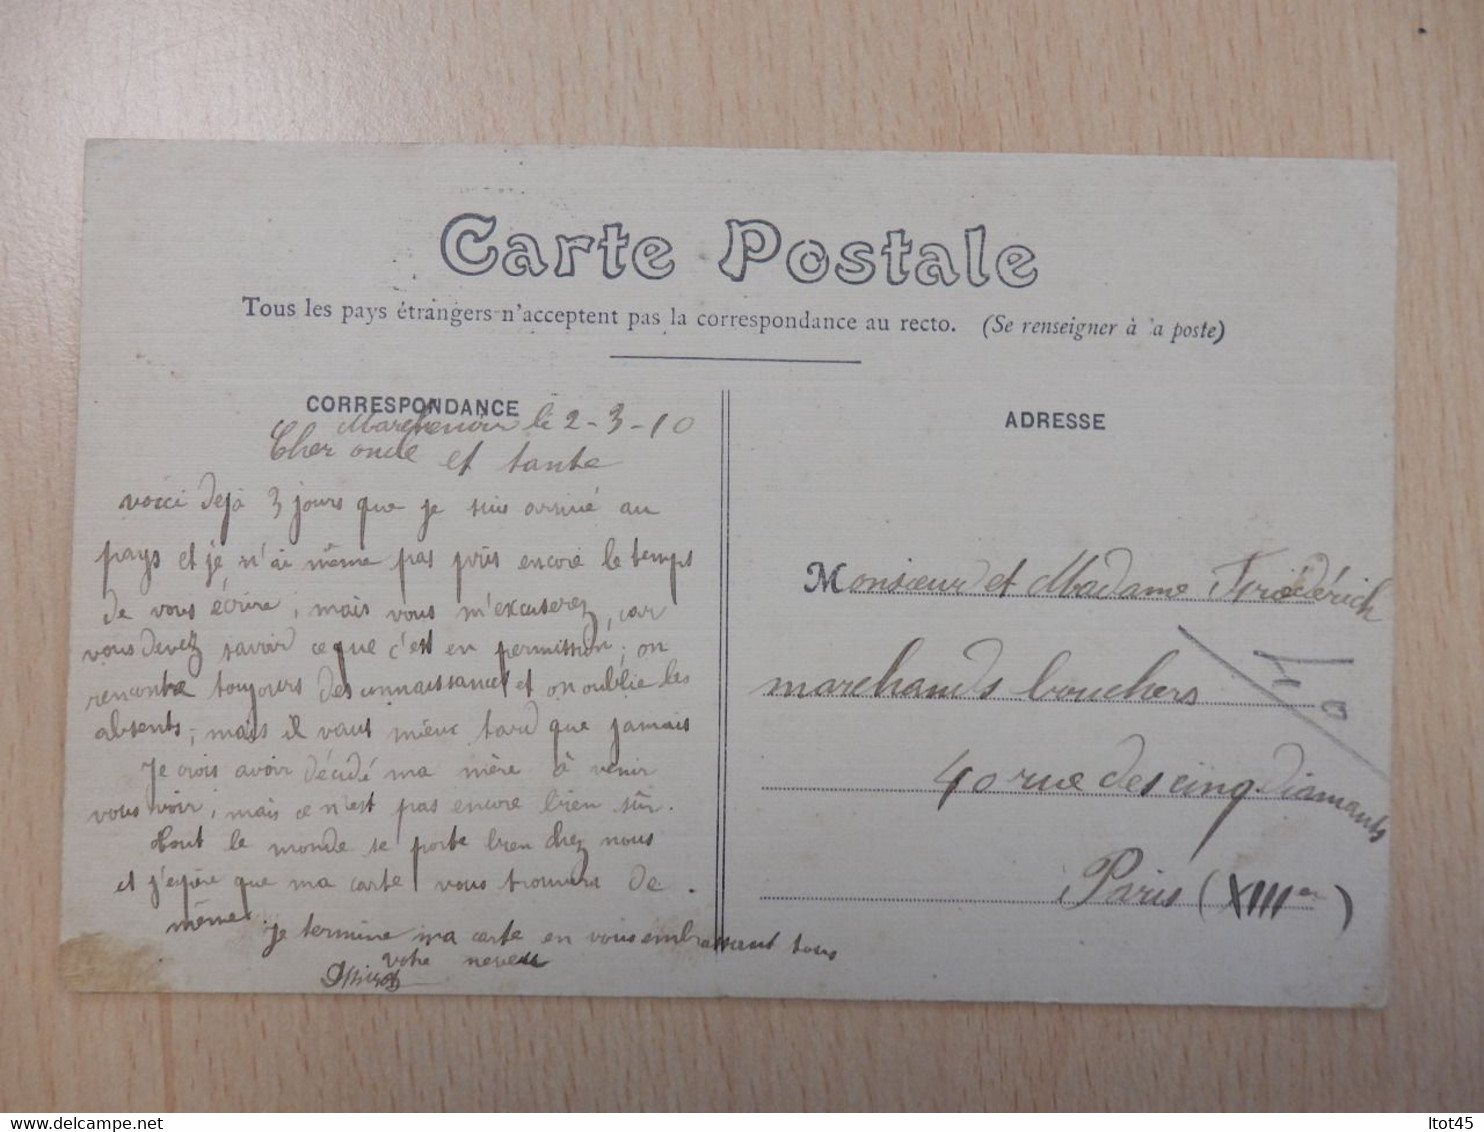 Carte Postale
Tous les pays étrangers n'acceptent pas la correspondance au recto. (Se renseigner à la poste)
CORRESPONDANCE
Marchenoir le 2-3-10
Cher oncle et tante
voici dejà 3 jours que je suis arrivé au
pays et je n'ai même pas pris encore le temps
de vous écrire, mais vous m'excuserez, car
vous devez savoir ce que c'est en permission; on
rencontre toujours des connaissances et on oublie les
absents; mais il vaut mieux tard que jamais
Je crois avoir décidé ma mère à venir
vous voir; mais ce n'est pas encore bien sûr.
tout le monde se porte bien chez nous
et j'espère que ma carte vous trouvera de
même. je termine ma carte en vous embrassant tous
votre neveu
ADRESSE
Monsieur et Madame Fréderich
marchands bouchers
40 rue des cinq-diamants
Paris (XIIIe)
ltot45